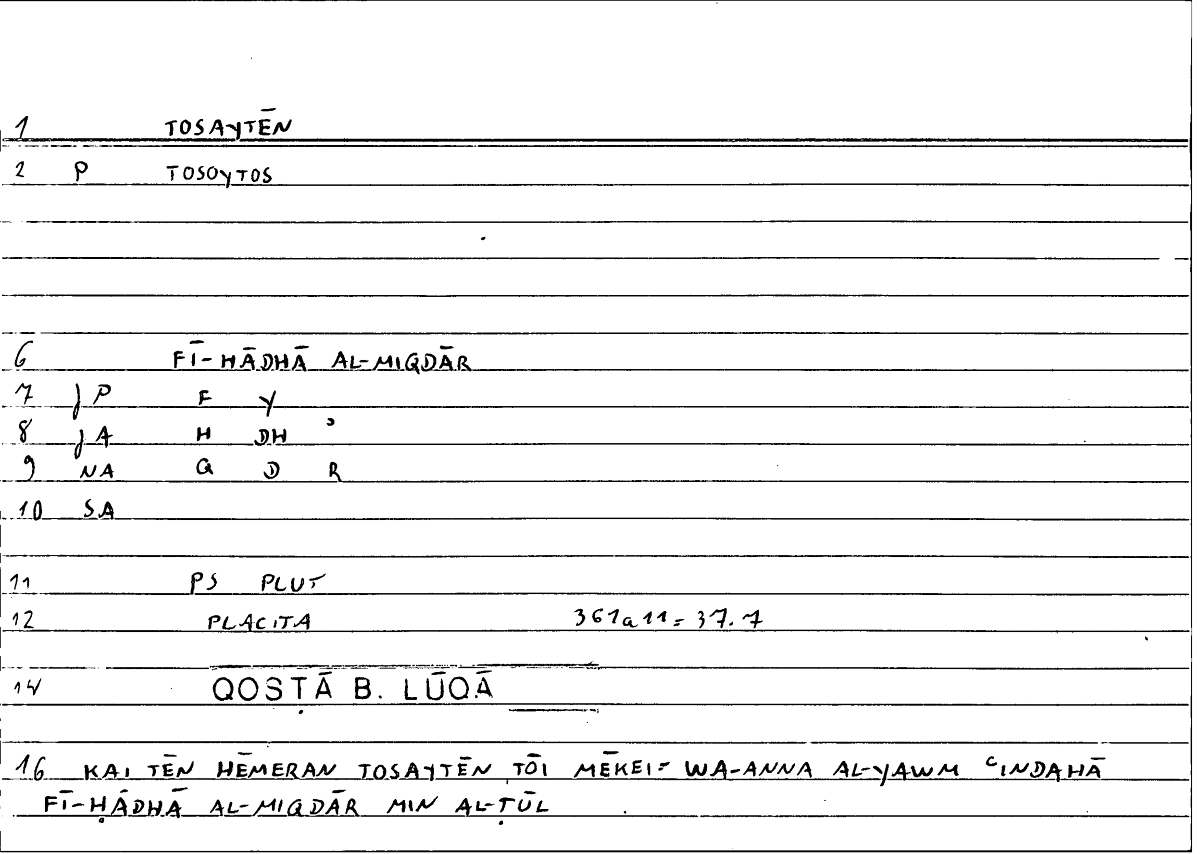 1 TOSAYTĒN
2 P TOSOYTOS
6 FĪ-HĀDHĀ AL-MIQDĀR
7 JP F Y
8 JA H DH ʾ
9 NA Q D R
10 SA
11 PS PLUT
12 PLACITA 361a11=37.7
14 QOSṬĀ B. LŪQĀ
16 KAI TĒN HĒMERAN TOSAYTĒN TŌI MĒKEI= WA-ANNA AL-YAWM ʿINDAHĀ
FĪ-HĀDHĀ AL-MIQDĀR MIN AL-ṬŪL